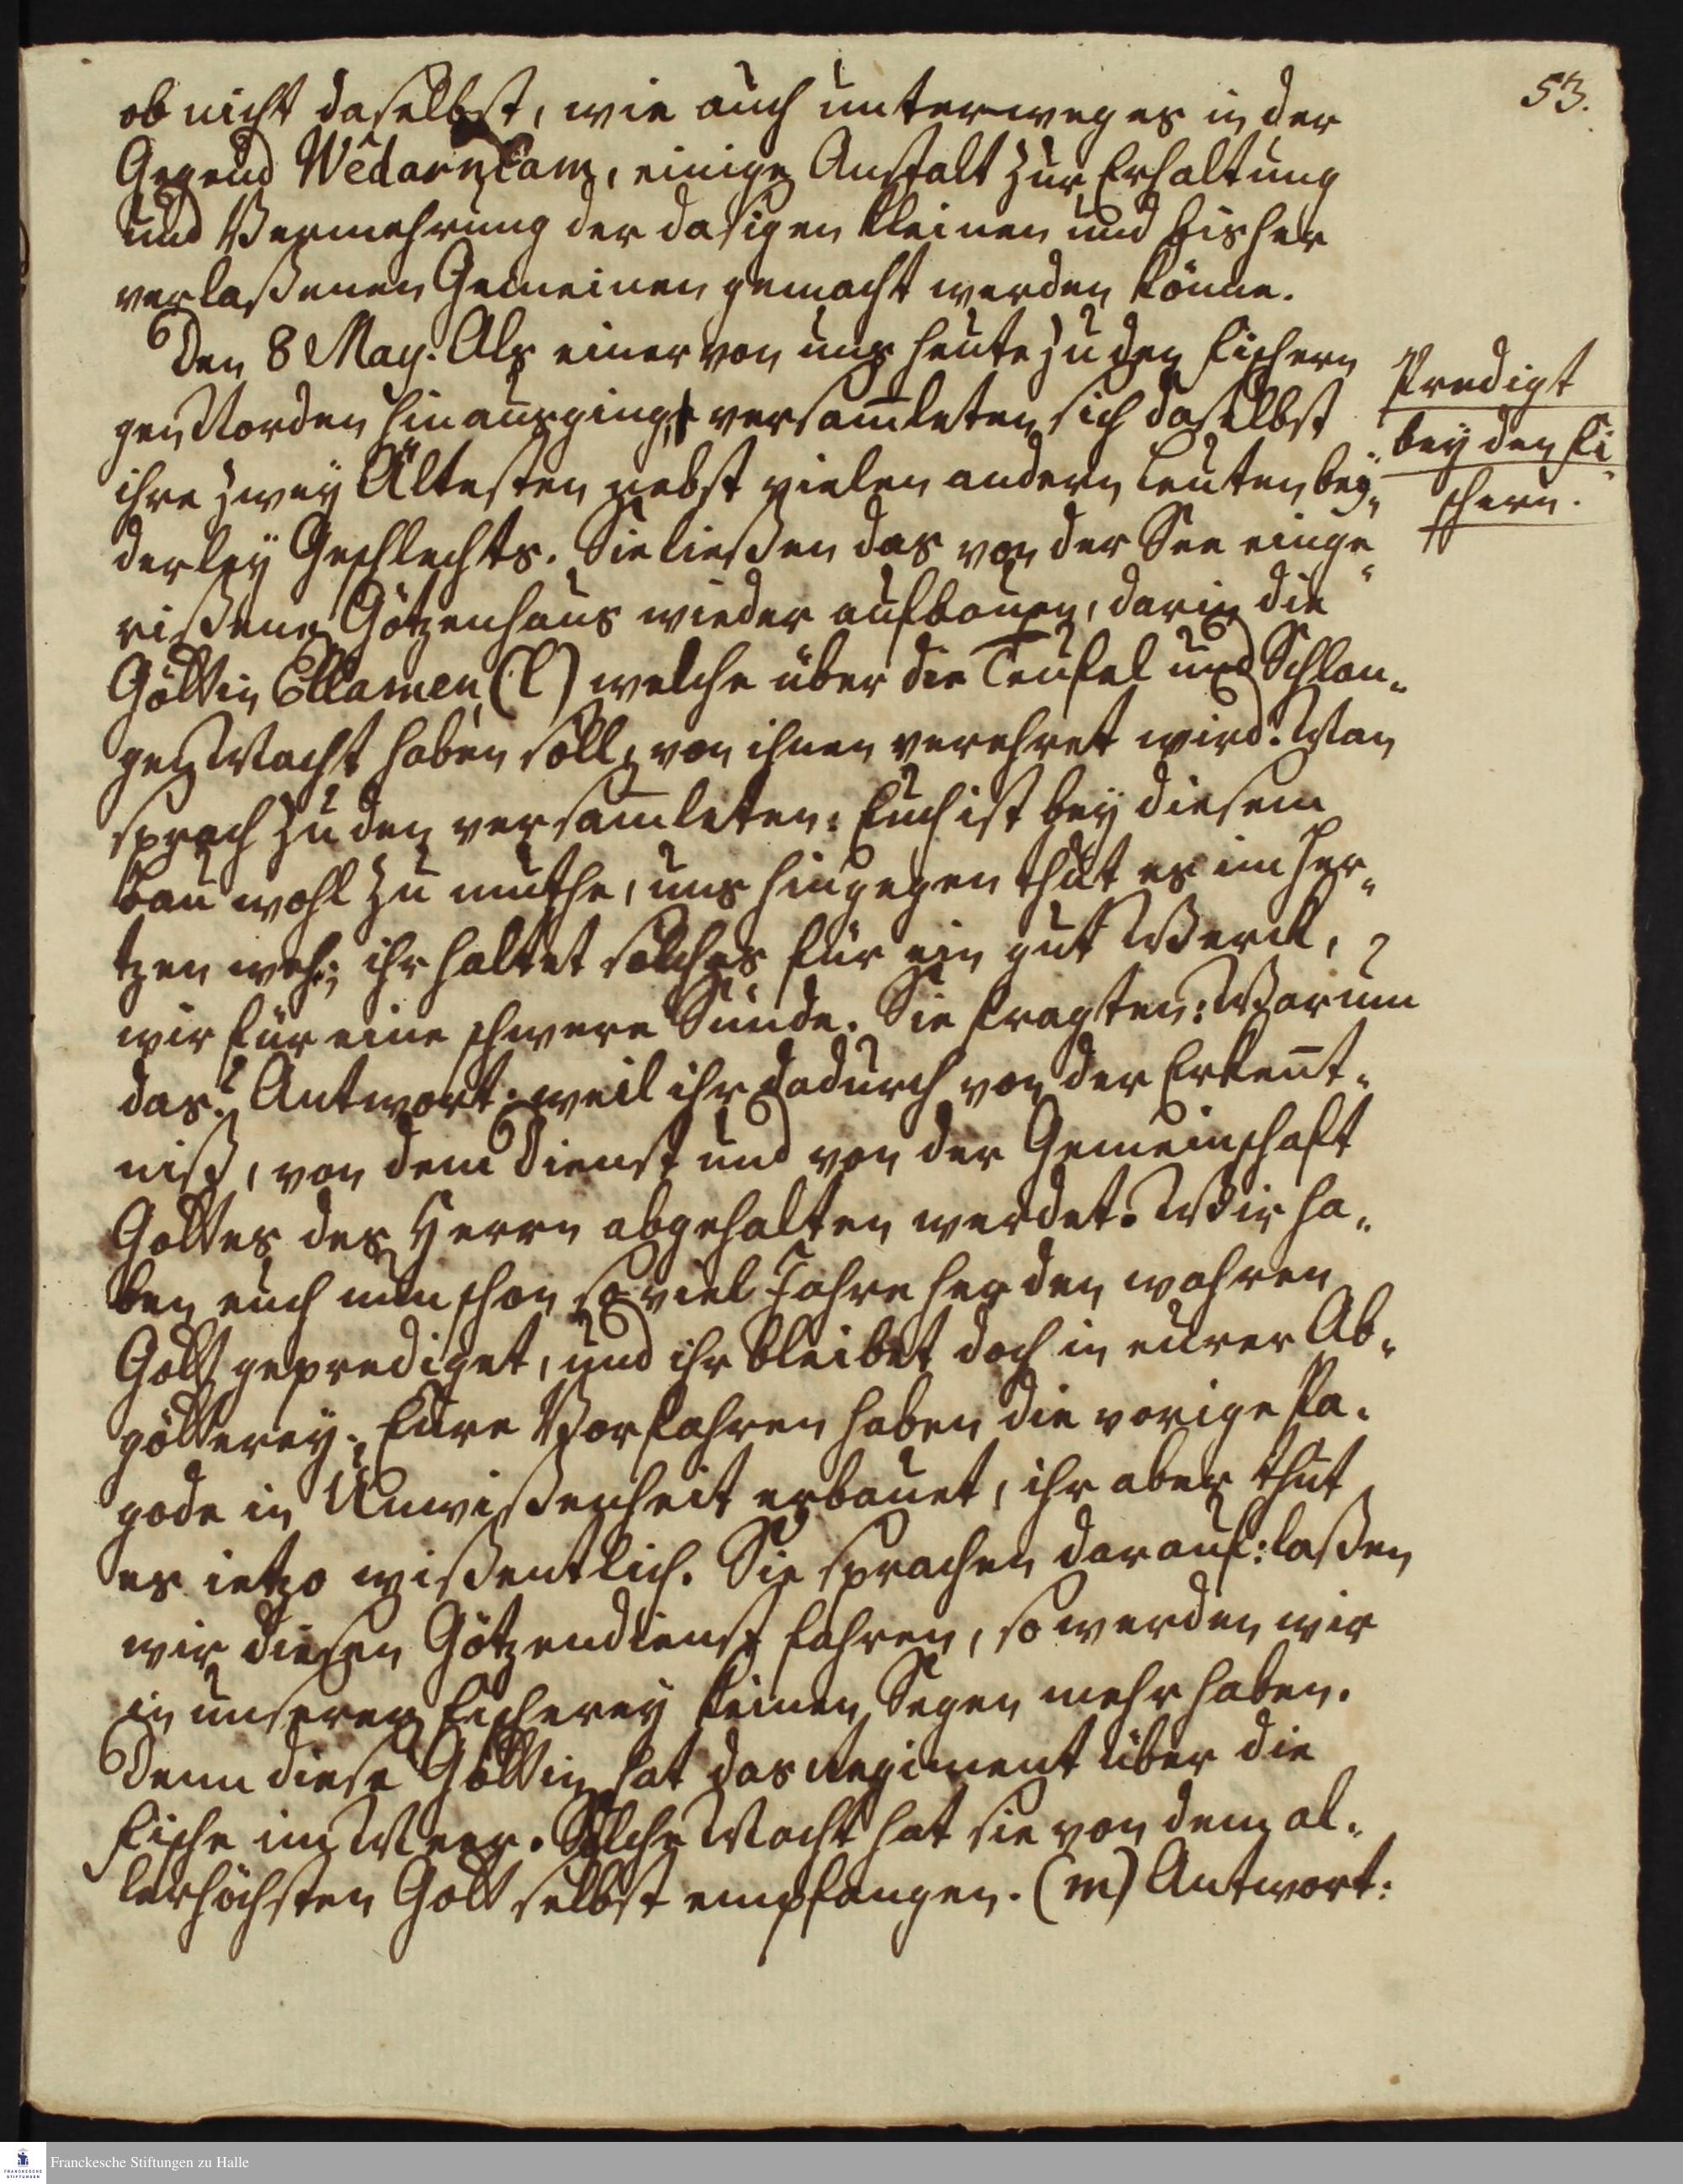 53.
ob nicht daselbst, wie auch unterweges in der
Gegend Wêdarniam, einige Anstalt zur Erhaltung
und Vermehrung der dasigen kleinen und bisher
verlaßenen Gemeinen gemacht werden könne.
Den 8 May. Als einer von uns heute zu den Fischern
gen Norden hinausging, versam̅leten sich daselbst
ihre zwey Ältesten nebst vielen andern Leuten bey-
derley Geschlechts. Sie ließen das von der See einge-
rißene Götzenhaus wieder aufbauen, darin die
Göttin Ellamen (l) welche über die Teufel und Schlan-
gen Macht haben soll, von ihnen verehret wird. Man
sprach zu den versam̅leten: Euch ist bey diesem
Bau wohl zu muthe, uns hingegen thut es im Her-
tzen weh; ihr haltet solches für ein gut Werck,
wir für eine schwere Sünde. Sie fragten: Warum
das? Antwort: weil ihr dadurch von der Erken̅t-
niß, von dem Dienst und von der Gemeinschaft
Gottes des Herrn abgehalten werdet. Wir ha-
ben euch nun schon so viel Jahre her den wahren
Gott geprediget, und ihr bleibet doch in eurer Ab-
götterey; Eure Vorfahren haben die vorige Pa-
gode in Unwißenheit erbauet, ihr aber thut
es ietzo wißentlich. Sie sprachen darauf: laßen
wir diesen Götzendienst fahren, so werden wir
in unserer Fischerey keinen Segen mehr haben.
Denn diese Göttin hat das Regiment über die
Fische im Meer. Solche Macht hat sie von dem al-
lerhöchsten Gott selbst empfangen. (m) Antwort:
Predigt
bey den Fi-
schern.
Franckesche Stiftungen zu Halle